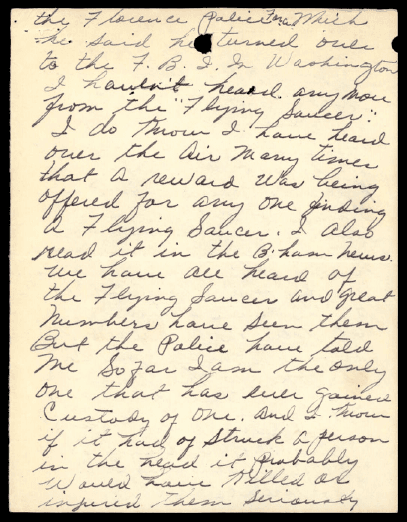 the Florence Police Force Which
he said he turned over
to the F. B. I. In Washington
I haven't heard any more
from the "Flying Saucer".
I do Know I have heard
over the Air Many times
that a reward was being
offered for any one finding
a Flying Saucer. I also
read it in the B. ham News.
We have all heard of
the Flying Saucer and great
Numbers have seen them
But the Police have told
me so far I am the only
one that has ever gained
Custody of one. And I Know
if it had of struck a person
in the head it probably
would have killed or
injured them seriously